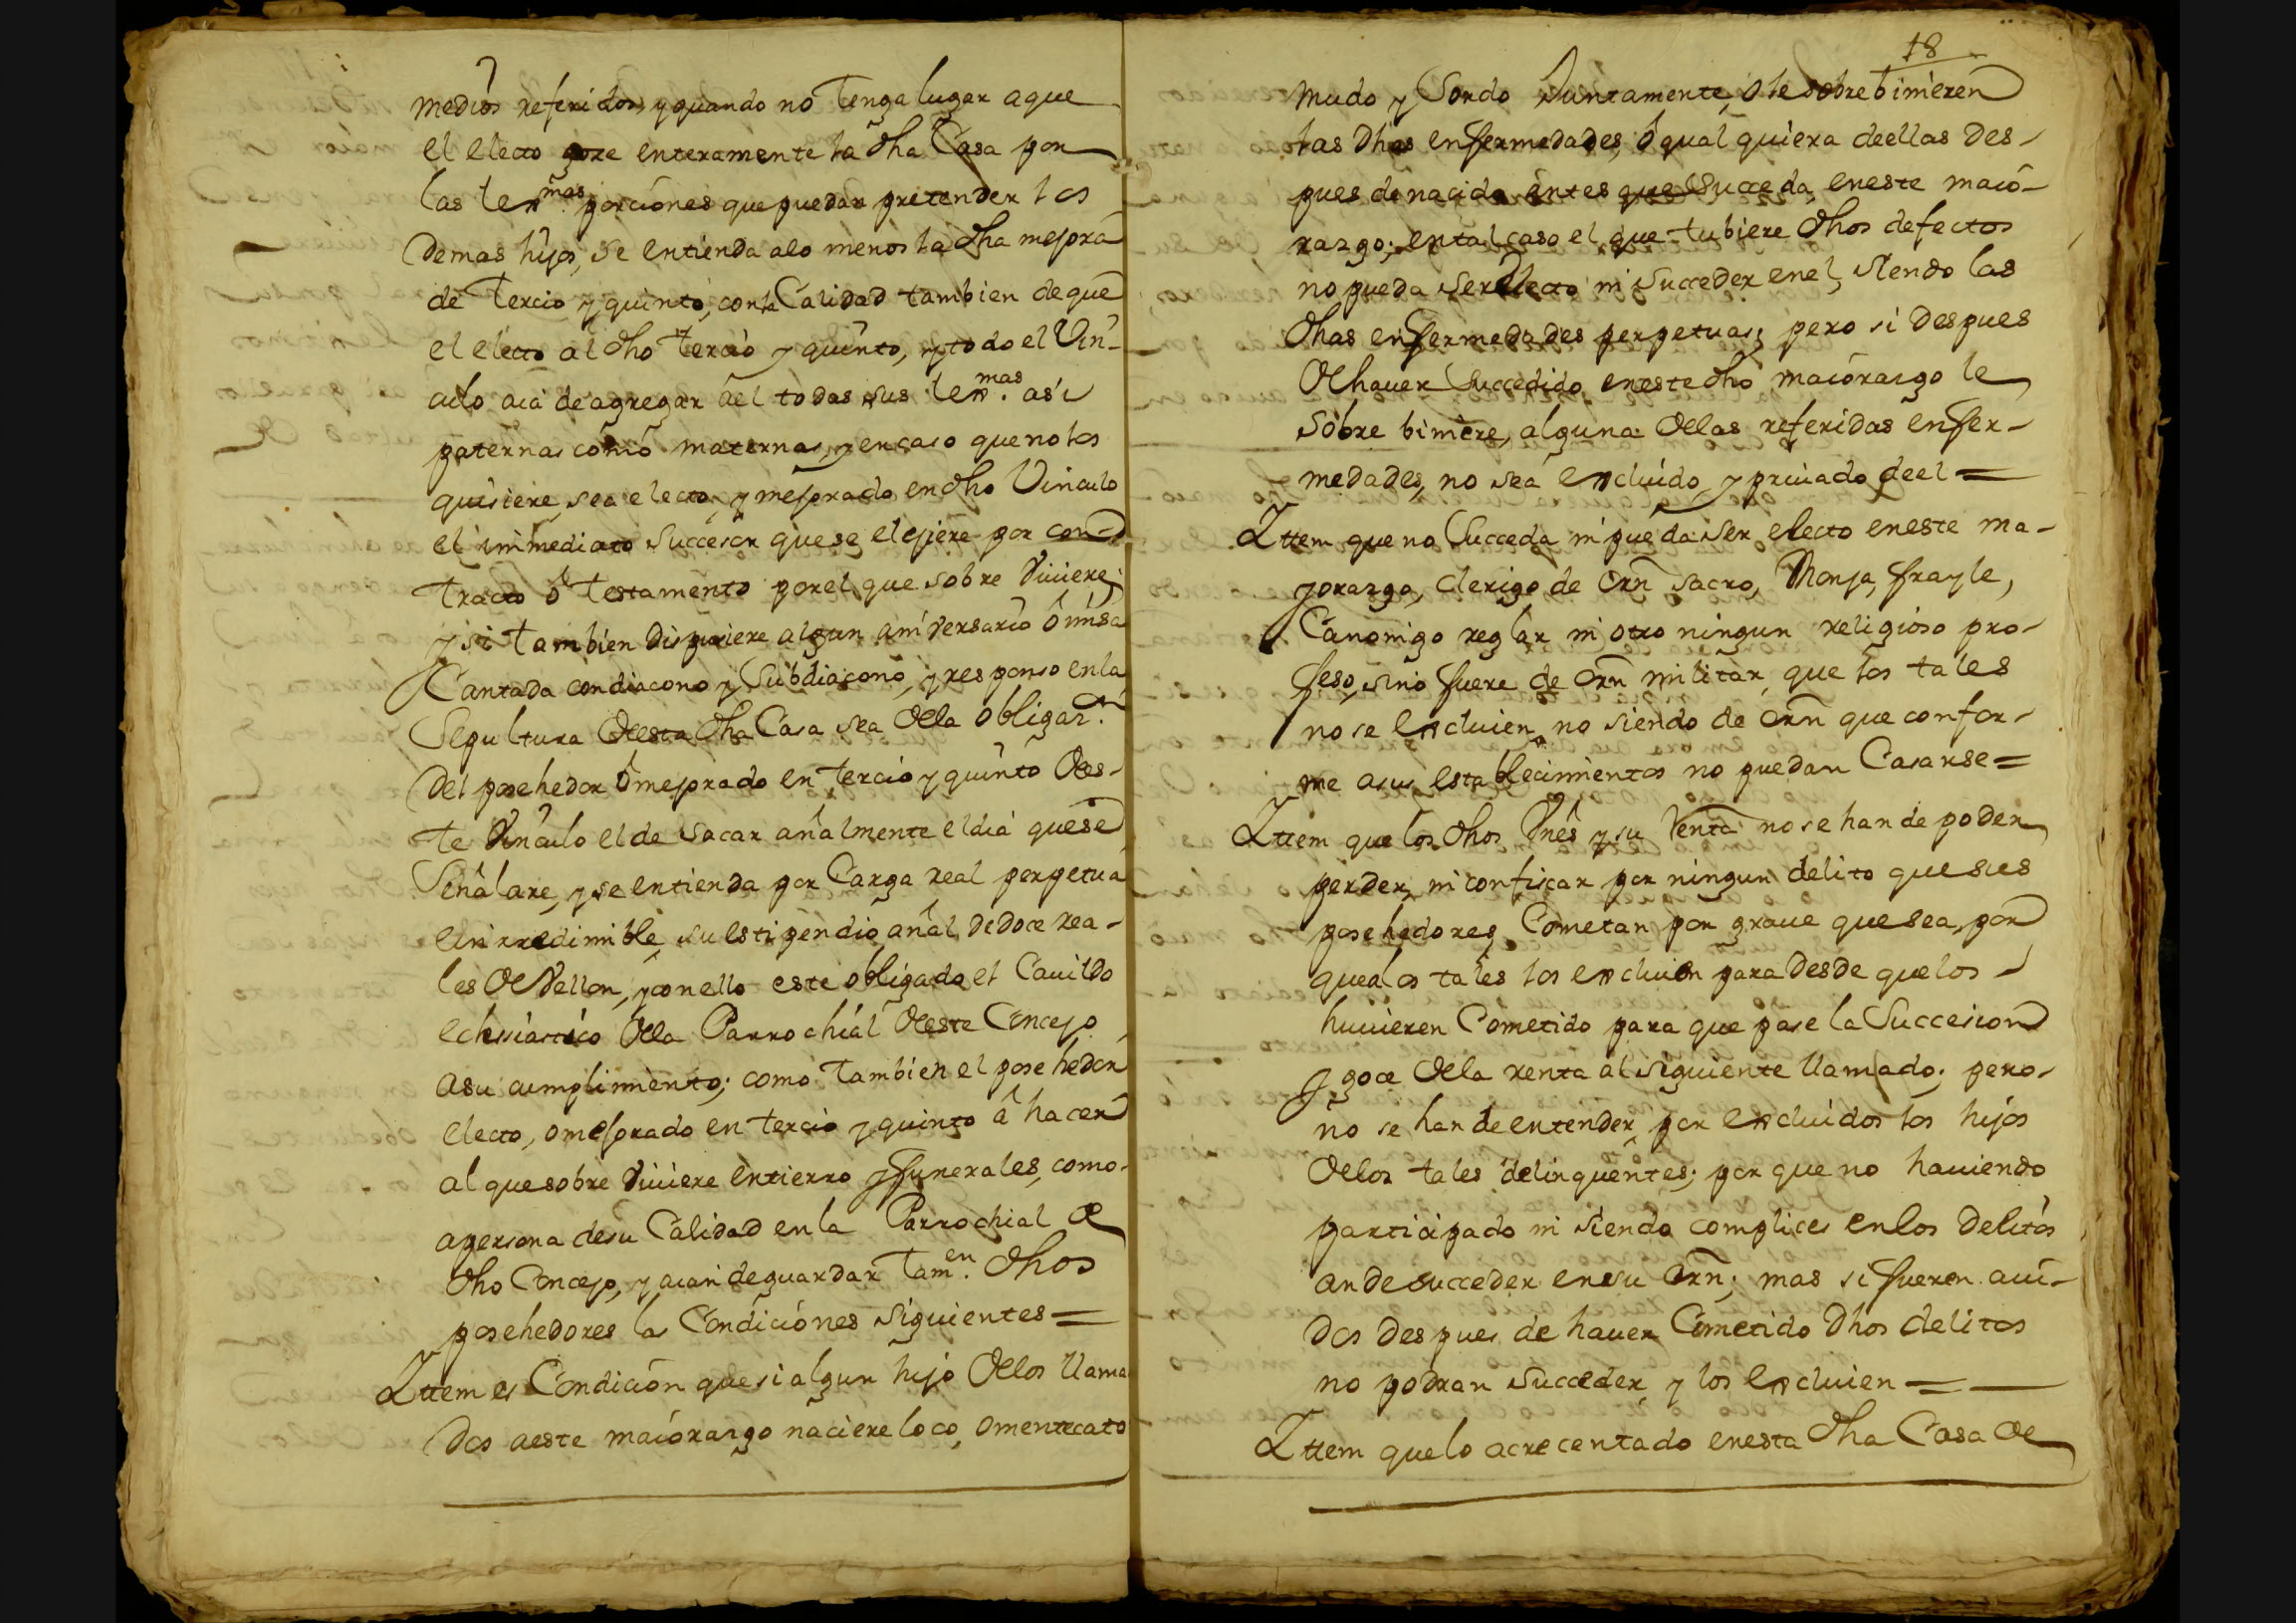 medios referidos, y quando no tenga lugar a que
el electo goze enteramente la dha Casa por
las lexmas porciones que puedan pretender los
demas hijos, se entienda alo menos la dha mejora
de tercio y quinto, con la Calidad tambien de que
el electo al dho tercio y quinto, y todo el Vin-
culo aia de agregar ael todas sus lexmas. asi
paternas como maternas, y en caso que no los
quisiere, sea electo, y mejorado en dho Vinculo
el immediato Succesor que se elejiere por con
tracto ô testamento por el que sobre viviere;
y si tambien dispusiere algun aniversario ô misa
Cantada con diacono y Subdiacono, y responso en la
Sepultura desta dha Casa sea de la obligazn.
del posehedor ô mejorado en tercio y quinto des-
te Vinculo el de sacar añalmente el dia que se
Señalare, y se entienda por Carga real perpetua
e inrredimible, su estipendio añal de doce rea-
les de Vellon, y con ello este obligado el Cavildo
eclesiastico de la Parrochial de este Concejo
a su cumplimiento; como tambien el posehedor
electo, o mejorado en tercio y quinto â hacer
al que sobre viviere entierro y funerales, como
apersona desu Calidad en la Parrochial de
dho Concejo, y aian de guardar tamen. dhos
posehedores las Condiciones siguientes=
Ittem es Condicion que si algun hijo de los llama
dos a este maiorazgo naciere loco, o mentecato
18
mudo y Sordo Juntamente, o le sobrebinieren
las dhas enfermedades, ô qual quiera de ellas des-
pues de nacido entes que succeda en este maio-
razgo; en tal caso el que tubiere dhos defectos
no pueda ser electo ni succeder en el, siendo las
dhas enfermedades perpetuas; pero si despues
de haver Succedido en este dho maiorazgo le
sobre biniere, alguna de las referidas enfer-
medades, no sea excluido, y privado de el=
Ittem que no Succeda ni pueda ser electo en este ma-
yorazgo, clerigo de orn sacro, Monja, frayle,
Canonigo reglar ni otro ningun religioso pro-
feso, sino fuere de orn militar, que los tales
no se excluien, no siendo de orn que confor-
me asus establecimientos no puedan Casarse=
Ittem que los dhos Vnes y su renta no se han de poder
perder, ni confiscar por ningun delito que sus
posehedores Cometan por grave que sea, por
que a los tales los excluien para desde que los
huvieren Cometido para que pase la Succesion
y goce de la renta al siguiente llamado; pero
no se han de entender por excluidos los hijos
de los tales delinquentes; por que no haviendo
participado ni siendo complices en los delitos
an de succeder en su orn; mas si fueren avi-
dos despues de haver Cometido dhos delitos
no podran succeder y los excluien =
Ittem que lo acrecentado en esta dha Casa de